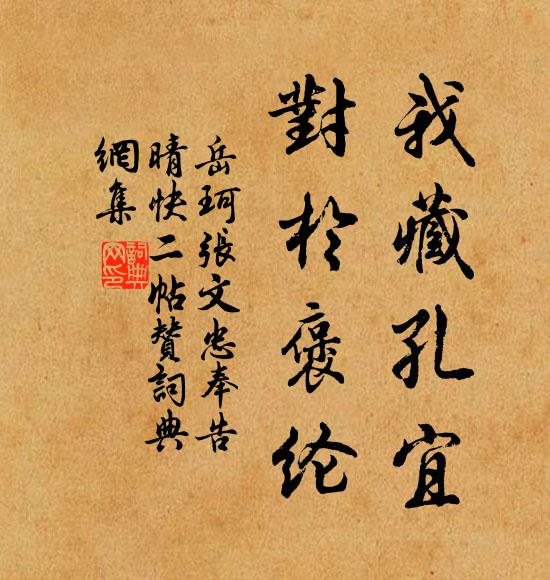 我藏孔宜
對於褒纶
岳珂張文忠奉告
晴快二帖贊詞典
網集
詞典網印